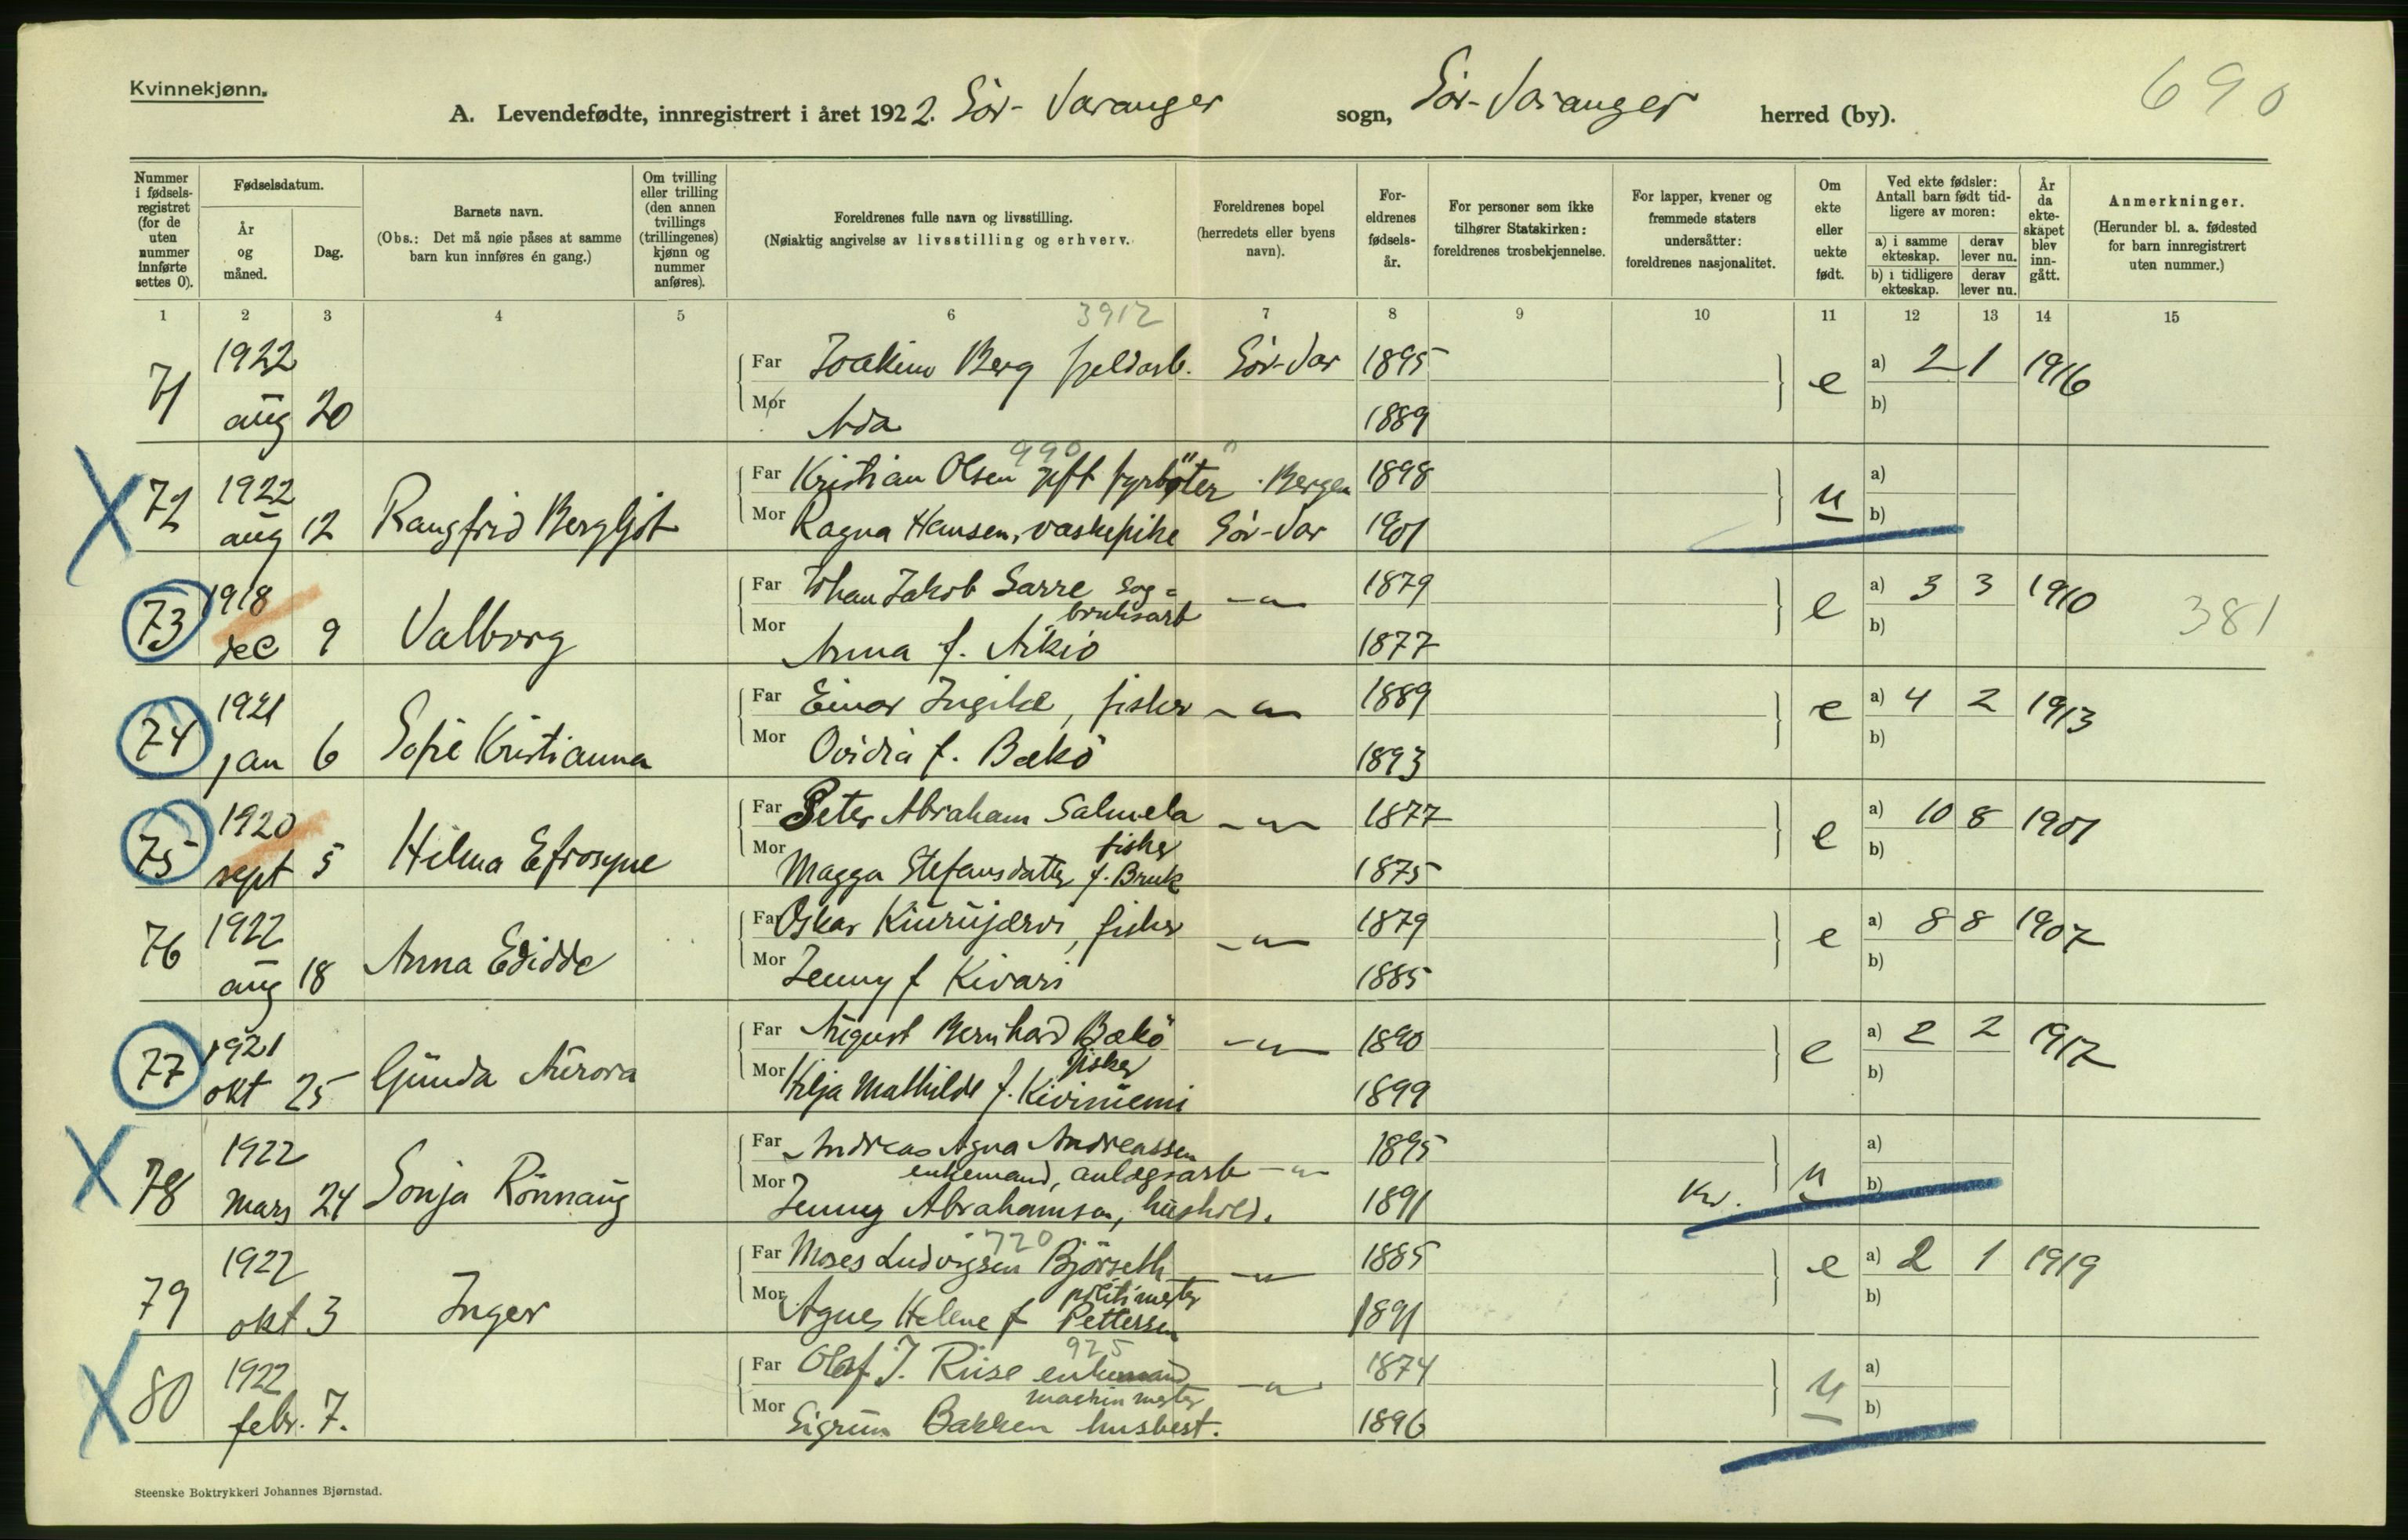 Kvinnekjønn.
690
A. Levendefødte, innregistrert i året 1922. Sör-Varanger sogn, Sör-Varanger herred (by).
Nummer i fødselsregistret (for de uten nummer innførte settes 0).
Fødselsdatum.
År og måned.
Dag.
Barnets navn.
(Obs.: Det må nøie påses at samme barn kun innføres én gang.)
Om tvilling eller trilling (den annen tvillings (trillingenes) kjønn og nummer anføres).
Foreldrenes fulle navn og livsstilling.
(Nøiaktig angivelse av livsstilling og erhverv.
Foreldrenes bopel (herredets eller byens navn).
Foreldrenes fødselsår.
For personer som ikke tilhører Statskirken: foreldrenes trosbekjennelse.
For lapper, kvener og fremmede staters undersåtter: foreldrenes nasjonalitet.
Om ekte eller uekte født.
Ved ekte fødsler: Antall barn født tidligere av moren:
a) i samme ekteskap. derav lever nu.
b) i tidligere ekteskap. derav lever nu.
År da ekteskapet blev inngått.
Anmerkninger.
(Herunder bl. a. fødested for barn innregistrert uten nummer.)
1 2 3 4 5 6 7 8 9 10 11 12 13 14 15
3912
71 1922 aug 20 Far Joakim Berg fjeldarb. Sör-Var 1895 e a) 2 1 1916
Mor Ada 1889 b)
990
X 72 1922 aug 12 Rangfrid Bergljot Far Kristian Olsen gift fyrböter Bergen 1898 u a)
Mor Ragna Hansen, vaskepike Sör-Var 1901 b)
73 1918 dec 9 Valborg Far Johan Jakob Sarre sagbruksarb -"- 1879 e a) 3 3 1910 381
Mor Anna f. Aikio 1877 b)
74 1921 jan 6 Sofie Kristianna Far Einar Ingilæ, fisker -"- 1889 e a) 4 2 1913
Mor Ovidia f. Bækö 1893 b)
75 1920 sept 5 Hilma Efrosyne Far Peter Abraham Salmela fisker -"- 1877 e a) 10 8 1901
Mor Magga Stefansdatter f. Bruk 1875 b)
76 1922 aug 18 Anna Edidde Far Oskar Kiurujærvi, fisker -"- 1879 e a) 8 8 1907
Mor Jenny f Kivari 1885 b)
77 1921 okt 25 Gunda Aurora Far August Bernhard Bækö fisker -"- 1890 e a) 2 2 1917
Mor Hilja Mathilde f. Kiviniemi 1899 b)
X 78 1922 Mars 24 Sonja Rönnaug Far Andreas Agna Andreassen enkemand, anlægsarb -"- 1895 u a)
Mor Jenny Abrahamsen, hushold. 1891 Kv. b)
720
79 1922 okt 3 Inger Far Moses Ludvigsen Björseth politimester -"- 1885 e a) 2 1 1919
Mor Agnes Helene f Pettersen 1891 b)
925
X 80 1922 febr. 7. Far Olaf J. Riise enkemand maskinmester -"- 1874 u a)
Mor Sigrun Bakken husbest. 1896 b)
Steenske Boktrykkeri Johannes Bjørnstad.